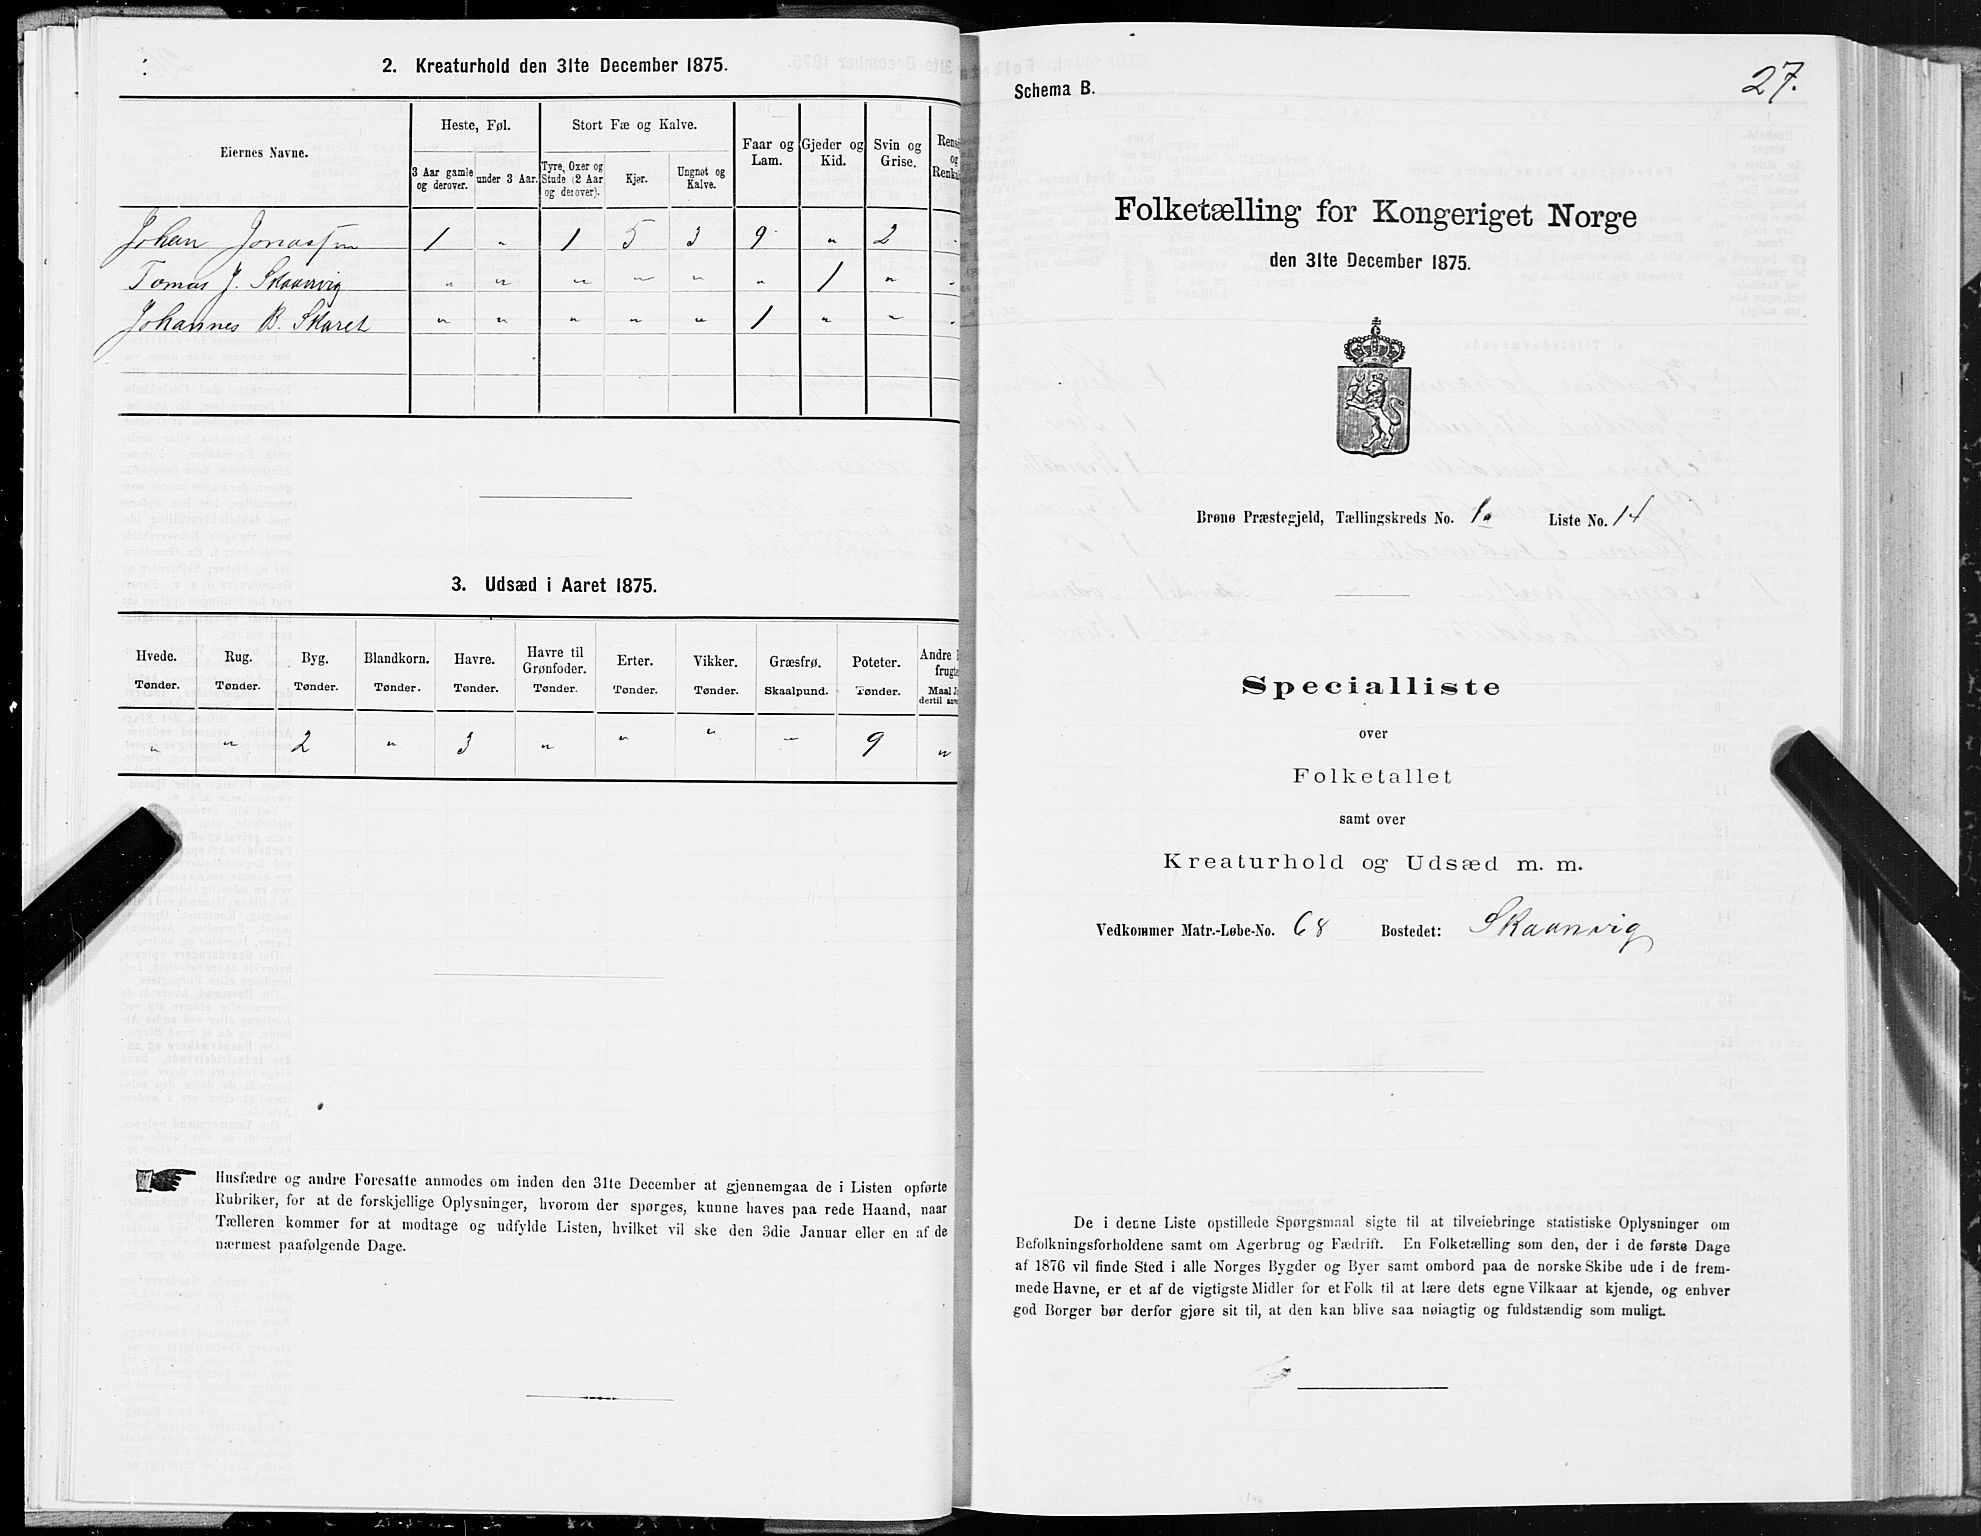 2. Kreaturhold den 31te December 1875.
Eiernes Navne.
Heste, Føl.
Stort Fæ og Kalve.
Faar og Lam.
Gjeder og Kid.
Svin og Grise.
3 Aar gamle og derover.
under 3 Aar.
Tyre, Oxer og Stude (2 Aar og derover).
Kjør.
Ungnøt og Kalve.
Johan Jonassen 1 " 1 5 3 9 " 2 "
Tomas J. Skaanvig " " " " " " 1 " "
Johannes B. Skaret " " " " " 1 " " "
3. Udsæd i Aaret 1875.
Hvede. Rug. Byg. Blandkorn. Havre. Havre til Grønfoder. Erter. Vikker. Græsfrø. Poteter. Andre
Tønder. Tønder. Tønder. Tønder. Tønder. Tønder. Tønder. Tønder. Skaalpund. Tønder.
" " 2 " 3 " " " – 9 "
Husfædre og andre Foresatte anmodes om inden den 31te December at gjennemgaa de i Listen opførte
Rubriker, for at de forskjellige Oplysninger, hvorom der spørges, kunne haves paa rede Haand, naar
Tælleren kommer for at modtage og udfylde Listen, hvilket vil ske den 3die Januar eller en af de
nærmest paafølgende Dage.
27.
Schema B.
Folketælling for Kongeriget Norge
den 31te December 1875.
Brønø Præstegjeld, Tællingskreds No. 1a Liste No. 14
Specialliste
over
Folketallet
samt over
Kreaturhold og Udsæd m. m.
Vedkommer Matr.-Løbe-No. 68 Bostedet: Skaanvig
De i denne Liste opstillede Spørgsmaal sigte til at tilveiebringe statistiske Oplysninger om
Befolkningsforholdene samt om Agerbrug og Fædrift. En Folketælling som den, der i de første Dage
af 1876 vil finde Sted i alle Norges Bygder og Byer samt ombord paa de norske Skibe ude i de frem-
mede Havne, er et af de vigtigste Midler for et Folk til at lære dets egne Vilkaar at kjende, og enhver
god Borger bør derfor gjøre sit til, at den kan blive saa nøiagtig og fuldstændig som muligt.